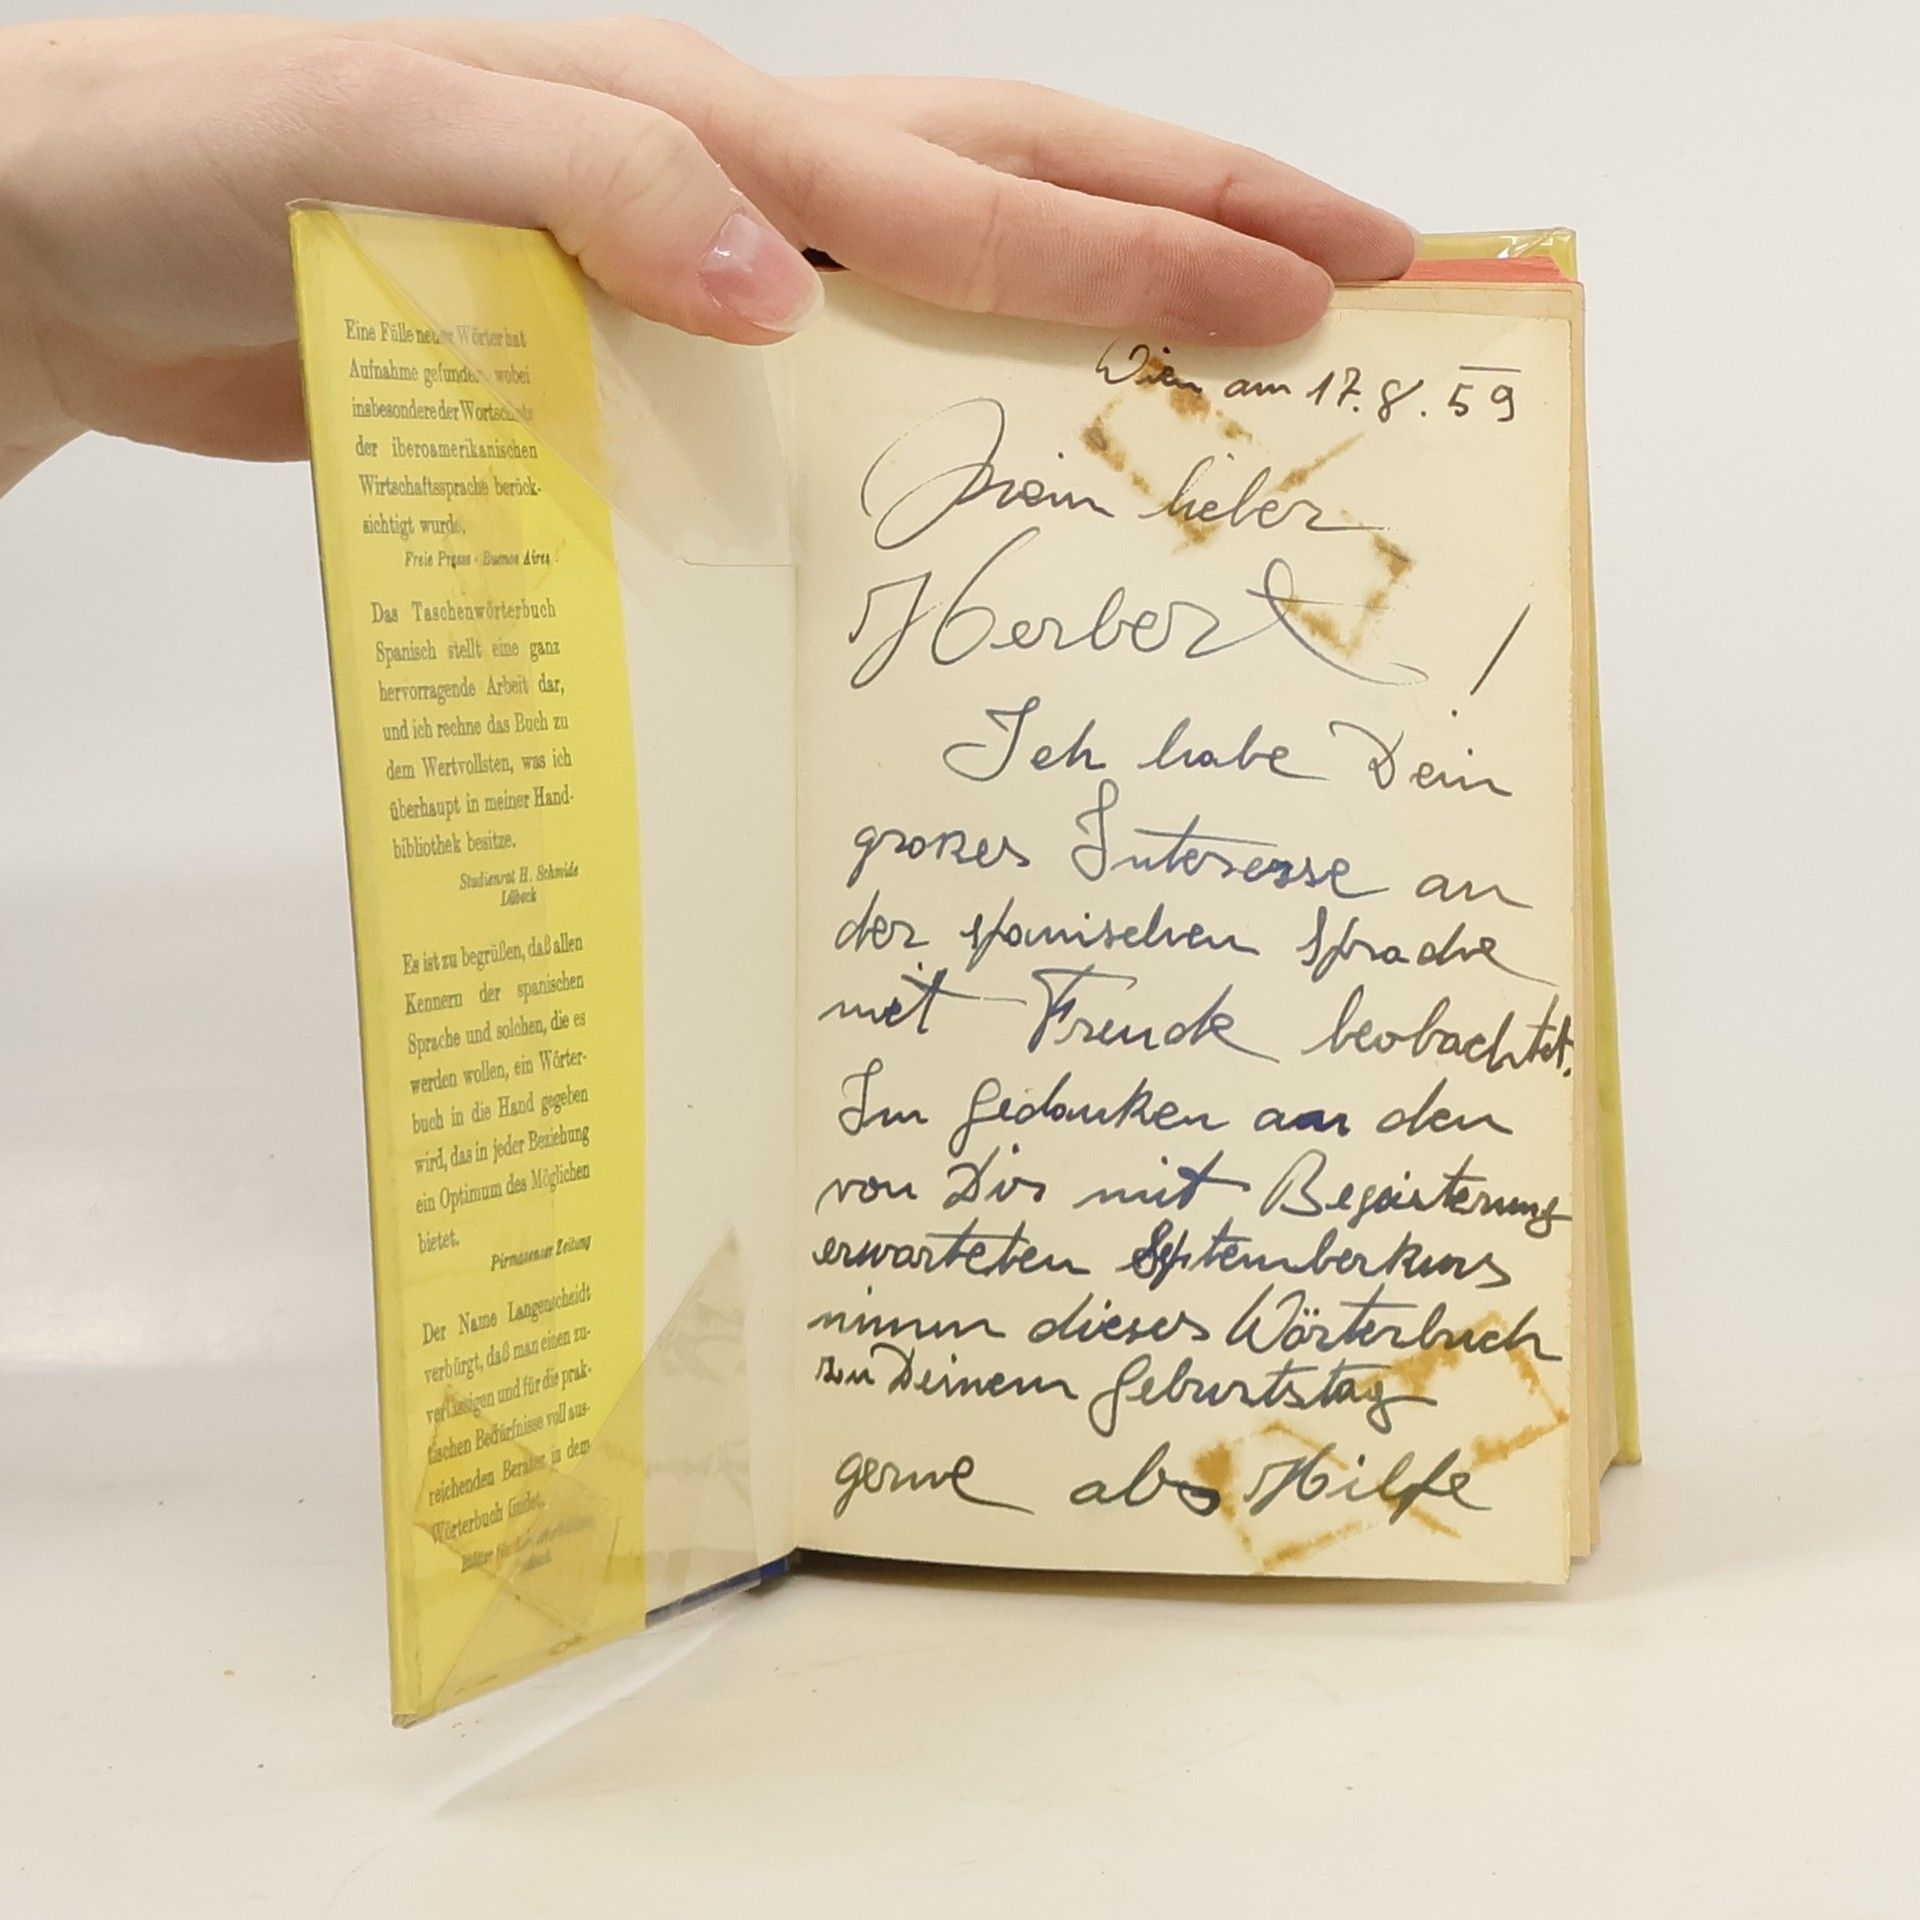 Eine Fülle neuer Wörter hat
Aufnahme gefunden, wobei
insbesondere der Wortschatz
der iberoamerikanischen
Wirtschaftssprache berück-
sichtigt wurde.
Freie Presse · Buenos Aires
Das Taschenwörterbuch
Spanisch stellt eine ganz
hervorragende Arbeit dar,
und ich rechne das Buch zu
dem Wertvollsten, was ich
überhaupt in meiner Hand-
bibliothek besitze.
Studienrat H. Schmidt
Lübeck
Es ist zu begrüßen, daß allen
Kennern der spanischen
Sprache und solchen, die es
werden wollen, ein Wörter-
buch in die Hand gegeben
wird, das in jeder Beziehung
ein Optimum des Möglichen
bietet.
Pirmasenser Zeitung
Der Name Langenscheidt
verbürgt, daß man einen zu-
verlässigen und für die prak-
tischen Bedürfnisse voll aus-
reichenden Berater in dem
Wörterbuch findet.
Blätter für
Wien am 17.8.59
Mein lieber
Herbert!
Ich habe Dein
großes Interesse an
der spanischen Sprache
mit Freude beobachtet.
Im Gedanken an den
von Dir mit Begeisterung
erwarteten Septemberkurs
nimm dieses Wörterbuch
zu Deinem Geburtstag
gerne als Hilfe